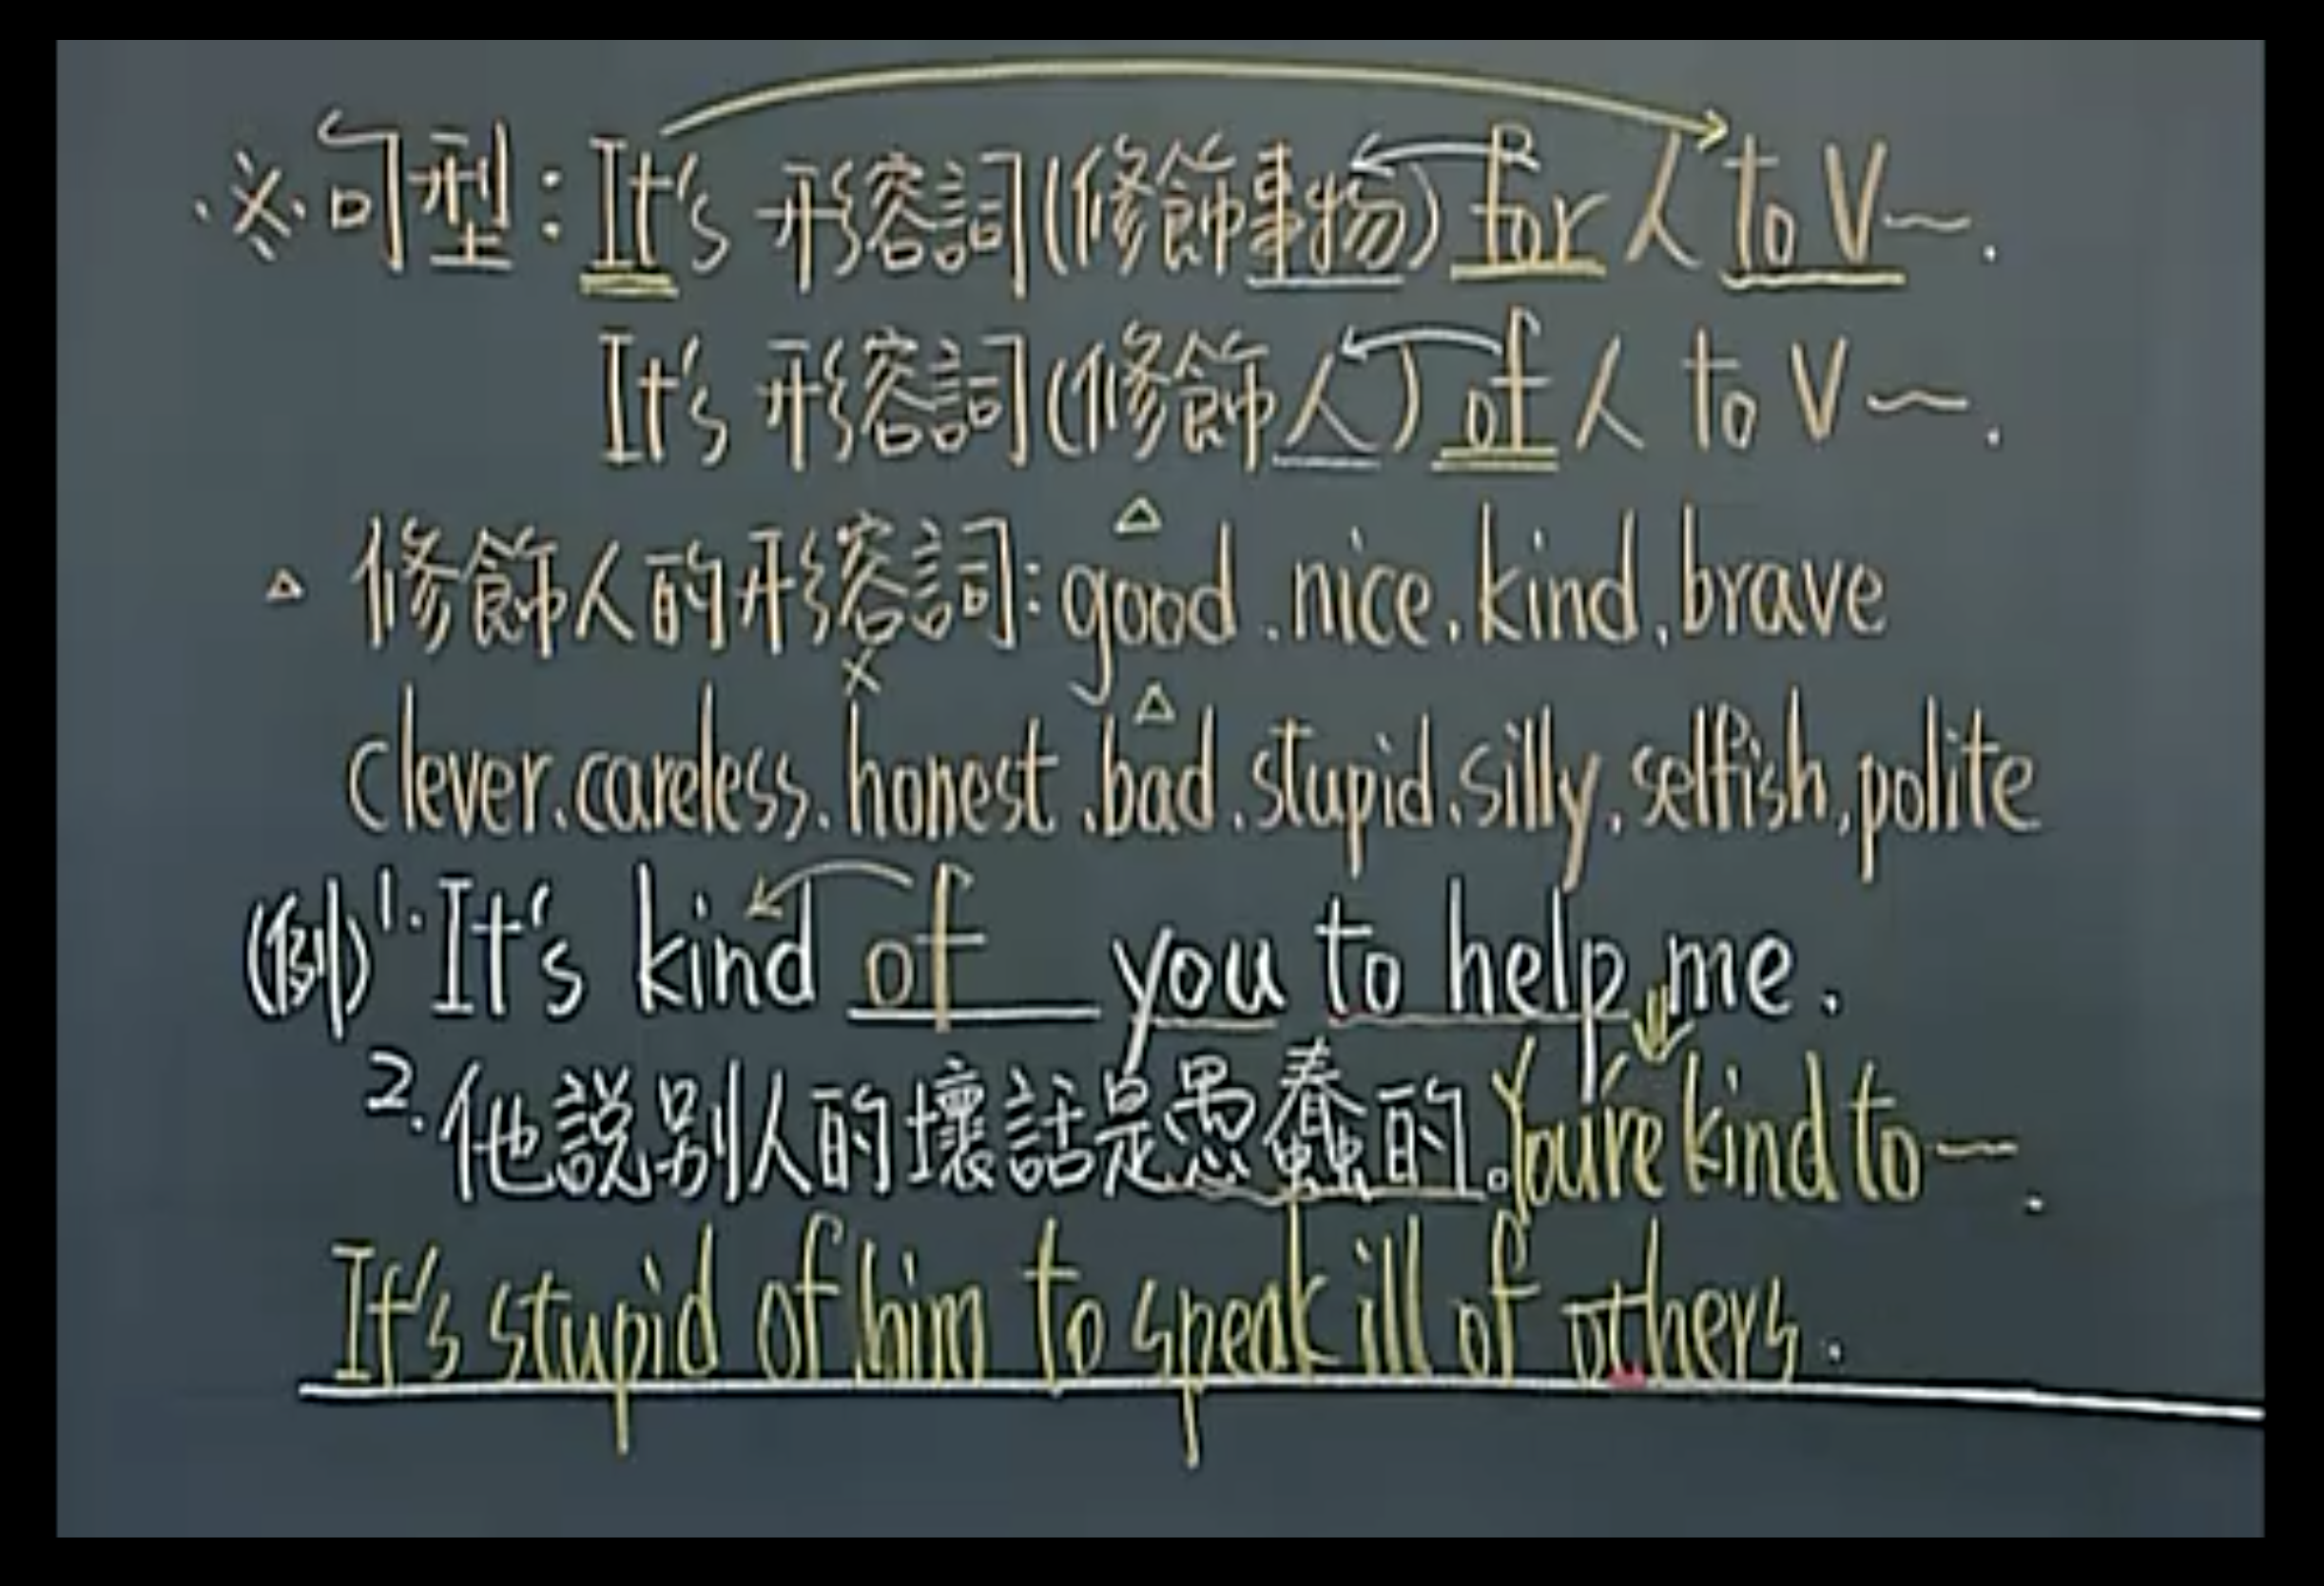 ※句型：It's 形容詞(修飾事物) for 人 to V～.
It's 形容詞(修飾人) of 人 to V～.
△ 修飾人的形容詞: good、nice、kind、brave
clever、careless、honest、bad、stupid、silly、selfish、polite
(例) 1. It's kind of you to help me.
2. 他說別人的壞話是愚蠢的。You're kind to～.
It's stupid of him to speak ill of others.